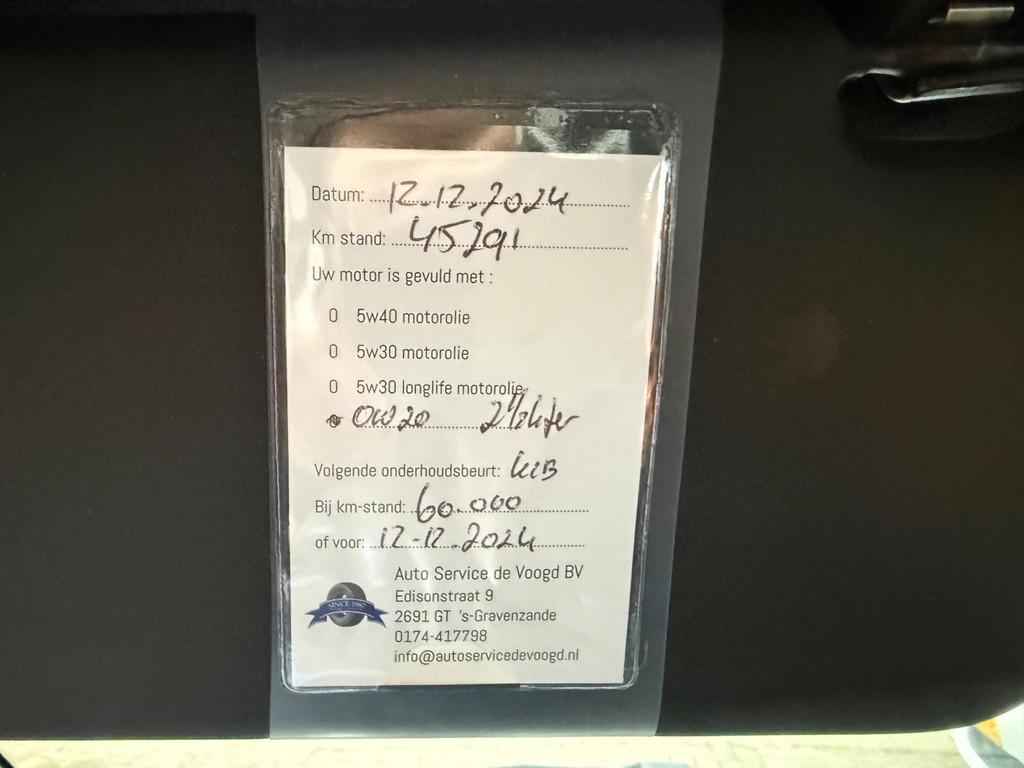 Datum: 12.12.2024
Km stand: 45291
Uw motor is gevuld met :
0 5w40 motorolie
0 5w30 motorolie
0 5w30 longlife motorolie
0W20 2 1/2 liter
Volgende onderhoudsbeurt:
Bij km-stand: 60.000
of voor: 12-12-2024
SINCE 1987
Auto Service de Voogd BV
Edisonstraat 9
2691 GT 's-Gravenzande
0174-417798
info@autoservicedevoogd.nl